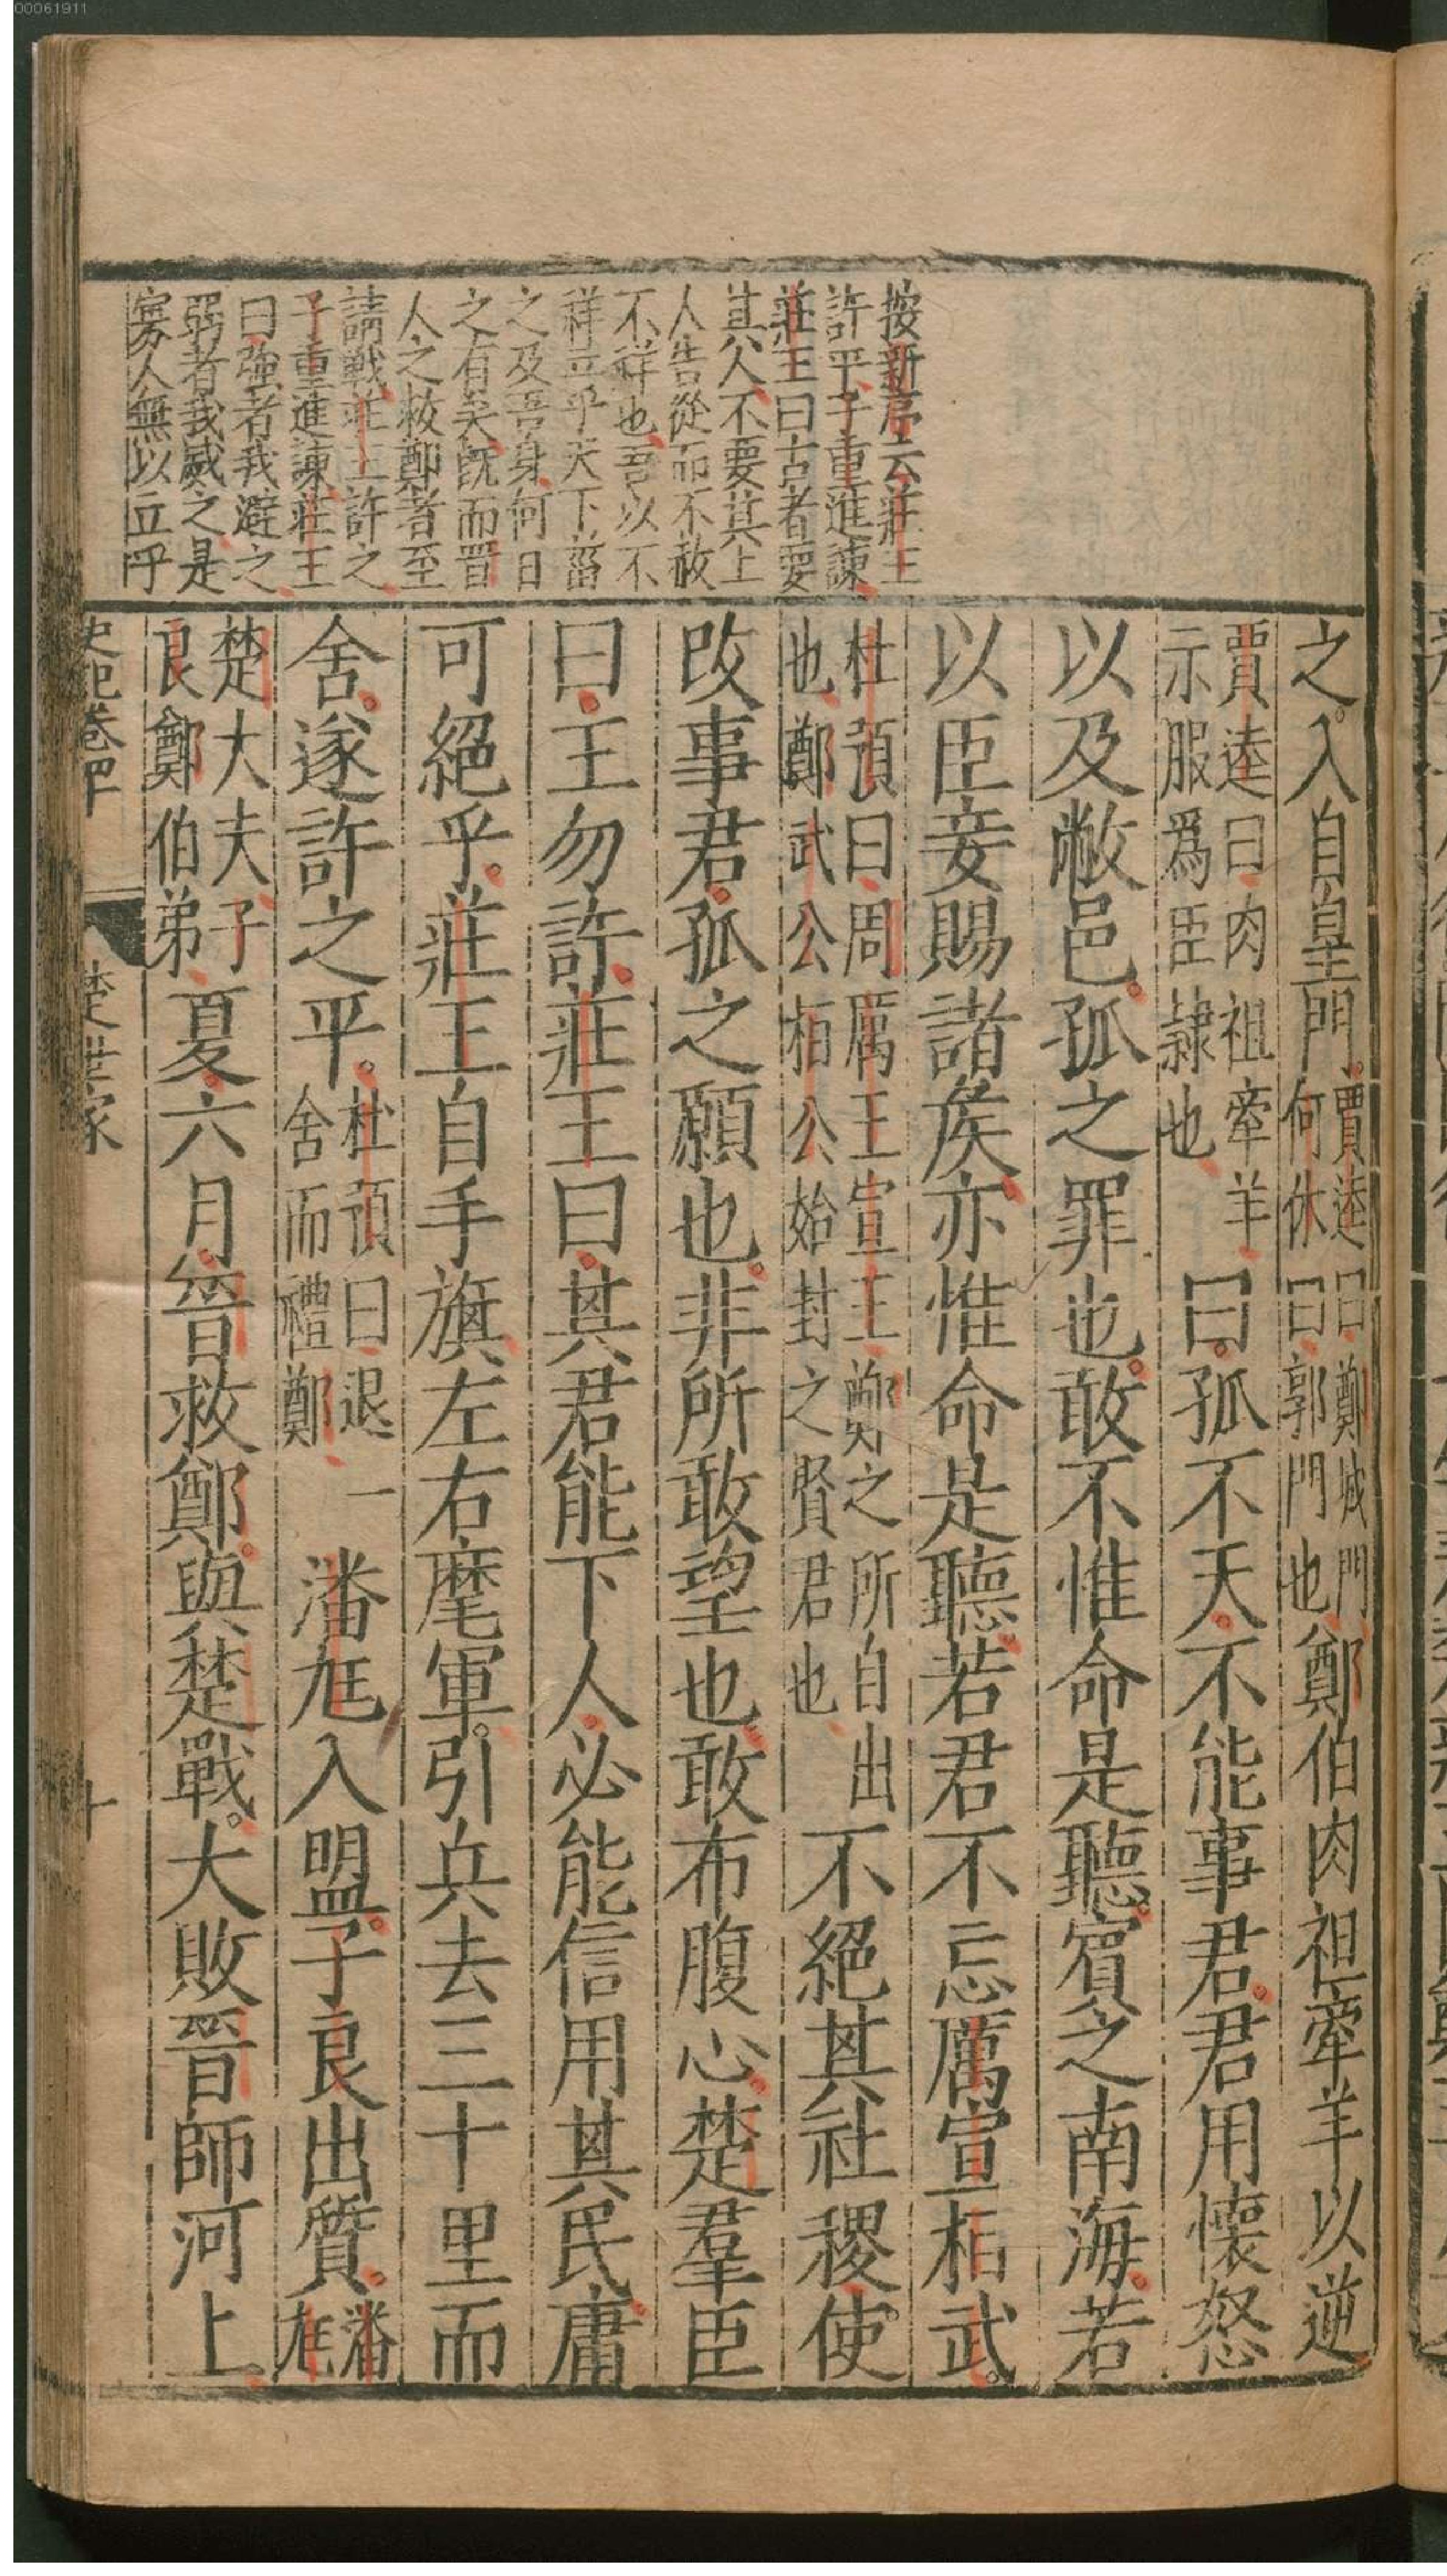 00061911
按新序云莊王
許平子重進諫
莊王曰古者要
其人不要其上
人告從而不赦
不祥也吾以不
祥立乎天下菑
之及吾身何日
之有矣旣而晋
人之救鄭者至
請戰莊王許之
子重進諫莊王
曰強者我避之
弱者我威之是
寡人無以立乎
之入自皇門賈逵曰鄭城門
何休曰郭門也鄭伯肉袒牽羊以逆
賈逵曰肉袒牽羊
示服爲臣隷也曰孤不天不能事君君用懷怒
以及敝邑孤之罪也敢不惟命是聽賓之南海若
以臣妾賜諸矦亦惟命是聽若君不忘厲宣桓武
杜預曰周厲王宣王鄭之所自出
也鄭武公桓公始封之賢君也不絕其社稷使
改事君孤之願也非所敢望也敢布腹心楚羣臣
曰王勿許莊王曰其君能下人必能信用其民庸
可絕乎莊王自手旗左右麾軍引兵去三十里而
舍遂許之平杜預曰退一
舍而禮鄭潘尫入盟子良出質潘
尫
楚大夫子
良鄭伯弟夏六月晉救鄭與楚戰大敗晉師河上
史記卷四十
楚世家
十